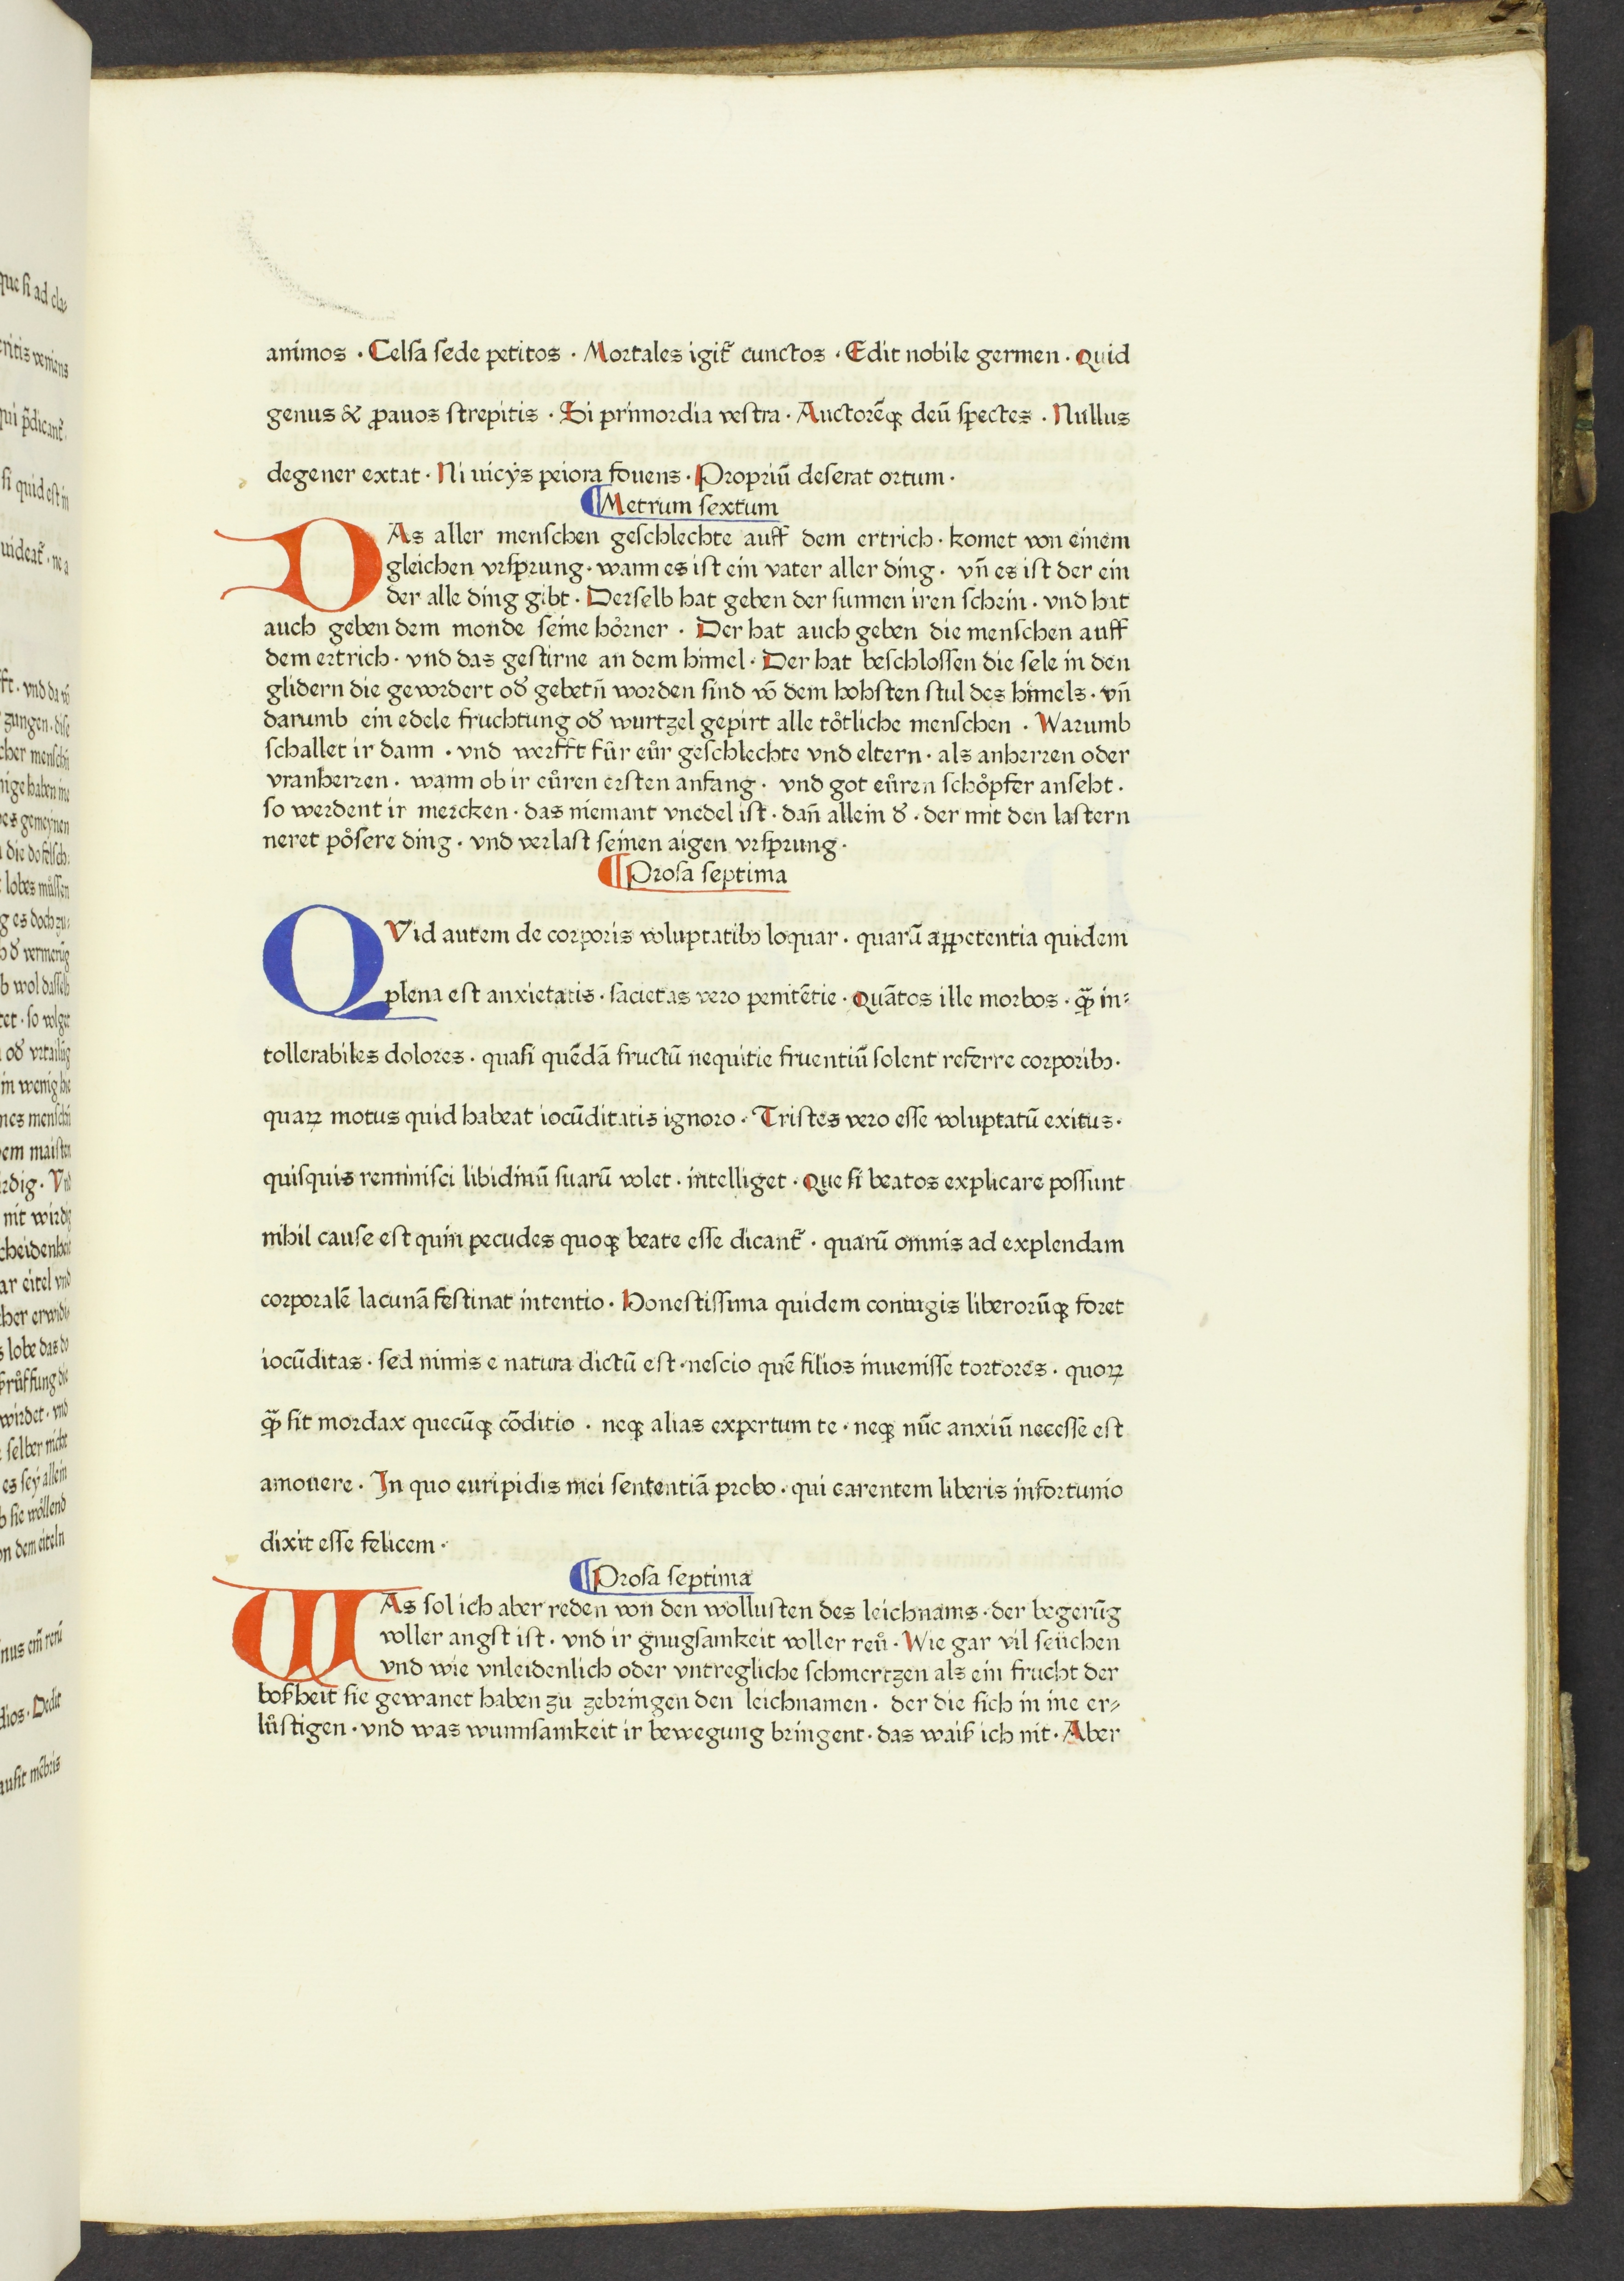 animos · Celsa sede petitos · Mortales igit᷑ cunctos · Edit nobile germen · Quid
genus & ꝓauos strepitis · Si primordia vestra · Auctorēqꝫ deū spectes · Nullus
degener extat · Ni uicÿs peiora fouens · Propriū deserat ortum ·
¶ Metrum sextum
DAs aller menschen geschlechte auff dem ertrich · komet von einem
gleichen vrsprung · wann es ist ein vater aller ding · vn̄ es ist der ein
der alle ding gibt · Derselb hat geben der sunnen iren schein · vnd hat
auch geben dem monde seine hoͤrner · Der hat auch geben die menschen auff
dem ertrich · vnd das gestirne an dem himel · Der hat beschlossen die sele in den
glidern die gevordert od᷑ gebetn̄ worden sind vō dem hohsten stul des himels · vn̄
darumb ein edele fruchtung od᷑ wurtzel gepirt alle toͤtliche menschen · Warumb
schallet ir dann · vnd werfft fuͤr euͤr geschlechte vnd eltern · als anherren oder
vranherren · wann ob ir euͤren ersten anfang · vnd got euͤren schoͤpfer anseht ·
so werdent ir mercken · das niemant vnedel ist · dan̄ allein d᷑ · der mit den lastern
neret poͤsere ding · vnd verlast seinen aigen vrsprung ·
¶ Prosa septima
QVid autem de corporis voluptatibꝫ loquar · quarū aꝑpetentia quidem
plena est anxietatis · sacietas vero penitētie · Quātos ille morbos · qꝫ̄ in⸗
tollerabiles dolores · quasi quēdā fructū nequitie fruentiū solent referre corporibꝫ ·
quaꝝ motus quid habeat iocūditatis ignoro · Tristes vero esse voluptatū exitus ·
quisquis reminisci libidinū suarū volet · intelliget · Que si beatos explicare possunt
nihil cause est quin pecudes quoqꝫ beate esse dicant᷑ · quarū omnis ad explendam
corporalē lacunā festinat intentio · Honestissima quidem coniugis liberorūqꝫ foret
iocūditas · sed nimis e natura dictū est · nescio quē filios inuenisse tortores · quoꝝ
qꝫ̄ sit mordax quecūqꝫ cōditio · neqꝫ alias expertum te · neqꝫ nūc anxiū necesse est
amouere · In quo euripidis mei sententiā probo · qui carentem liberis infortunio
dixit esse felicem ·
¶ Prosa septima
WAs sol ich aber reden von den wollusten des leichnams · der begerūg
voller angst ist · vnd ir gnugsamkeit voller reuͤ · Wie gar vil seüchen
vnd wie vnleidenlich oder vntregliche schmertzen als ein frucht der
boßheit sie gewanet haben zu zebringen den leichnamen · der die sich in ine er⸗
luͤstigen · vnd was wunnsamkeit ir bewegung bringent · das waiß ich nit · Aber